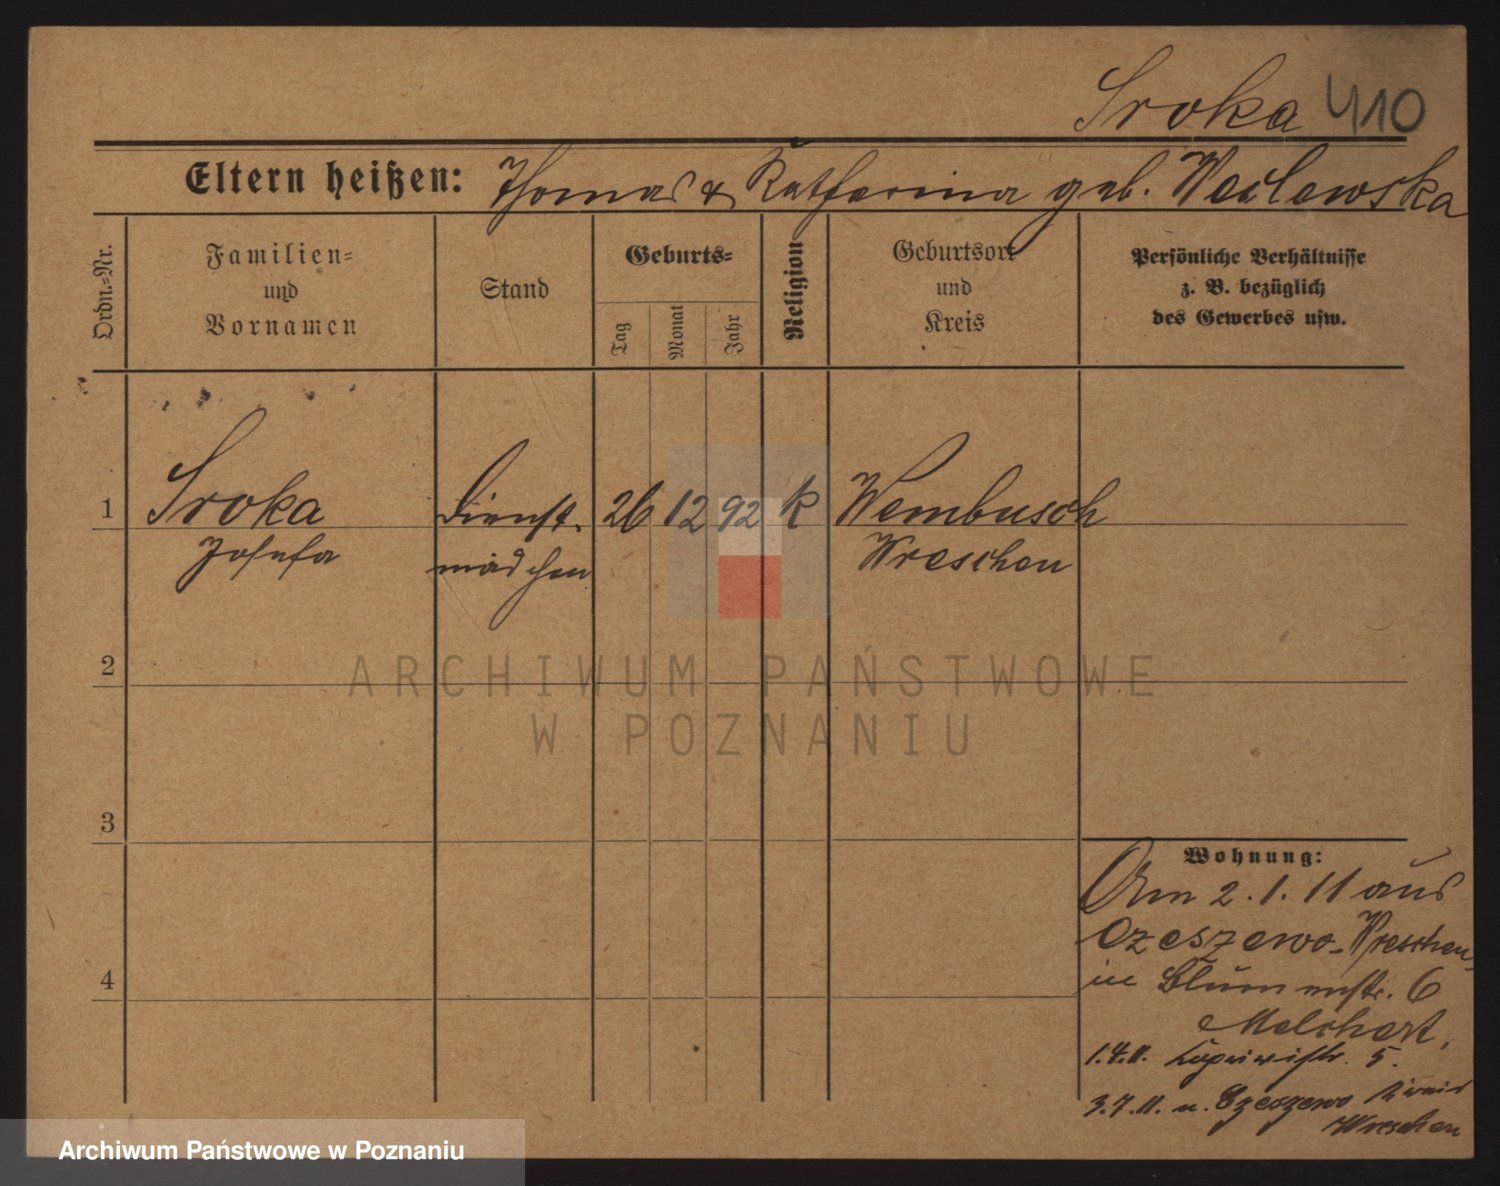 Sroka 410
Eltern heißen: Thomas & Katharina geb. Weclewska
Ordn.-Nr.
Familien-
und
Vornamen
Stand
Geburts-
Tag
Monat
Jahr
Religion
Geburtsort
und
Kreis
Persönliche Verhältnisse
z. B. bezüglich
des Gewerbes usw.
1 Sroka Dienst- 26 12 92 k Wembusch
Josefa mädchen Wreschen
2
3
4
Wohnung:
Am 2.1.11 aus
Czeszewo-Wreschen
in Blumenstr. 6
Melchert.
1.4.11. 5.
3.7.11. n. Czeszewo Kreis
Wreschen
ARCHIWUM PAŃSTWOWE
W POZNANIU
Archiwum Państwowe w Poznaniu